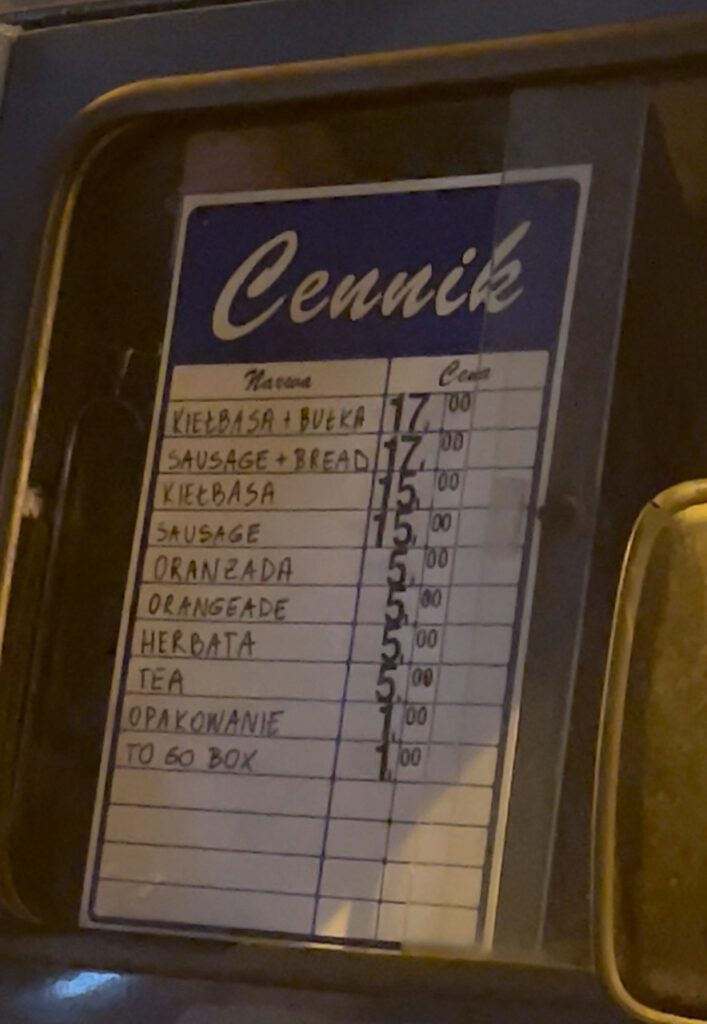 Cennik
Nazwa Cena
KIEŁBASA + BUŁKA 17,00
SAUSAGE + BREAD 17,00
KIEŁBASA 15,00
SAUSAGE 15,00
ORANŻADA 5,00
ORANGEADE 5,00
HERBATA 5,00
TEA 5,00
OPAKOWANIE 1,00
TO GO BOX 1,00